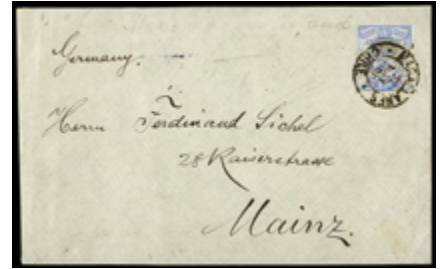 Germany.
Herrn Ferdinand Sichel
28 Kaiserstrasse
Mainz.